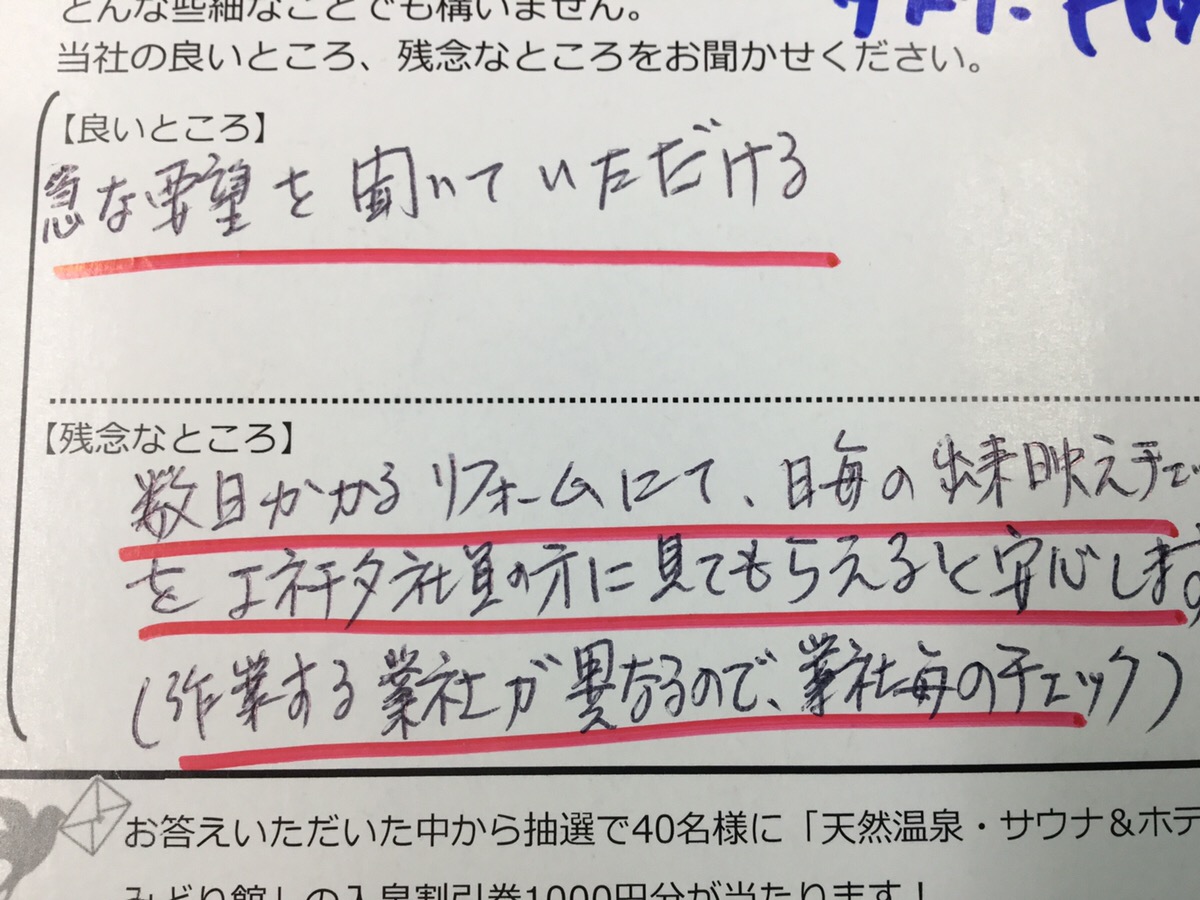 どんな些細なことでも構いません。
当社の良いところ、残念なところをお聞かせください。
【良いところ】
急な要望を聞いていただける
【残念なところ】
数日かかるリフォームにて、日毎の出来映えチェッ
をエネチタ社員の方に見てもらえると安心します
(作業する業社が異なるので、業社毎のチェック)
お答えいただいた中から抽選で40名様に「天然温泉・サウナ&ホテ
みどり館」の入泉割引券1000円分が当たります!